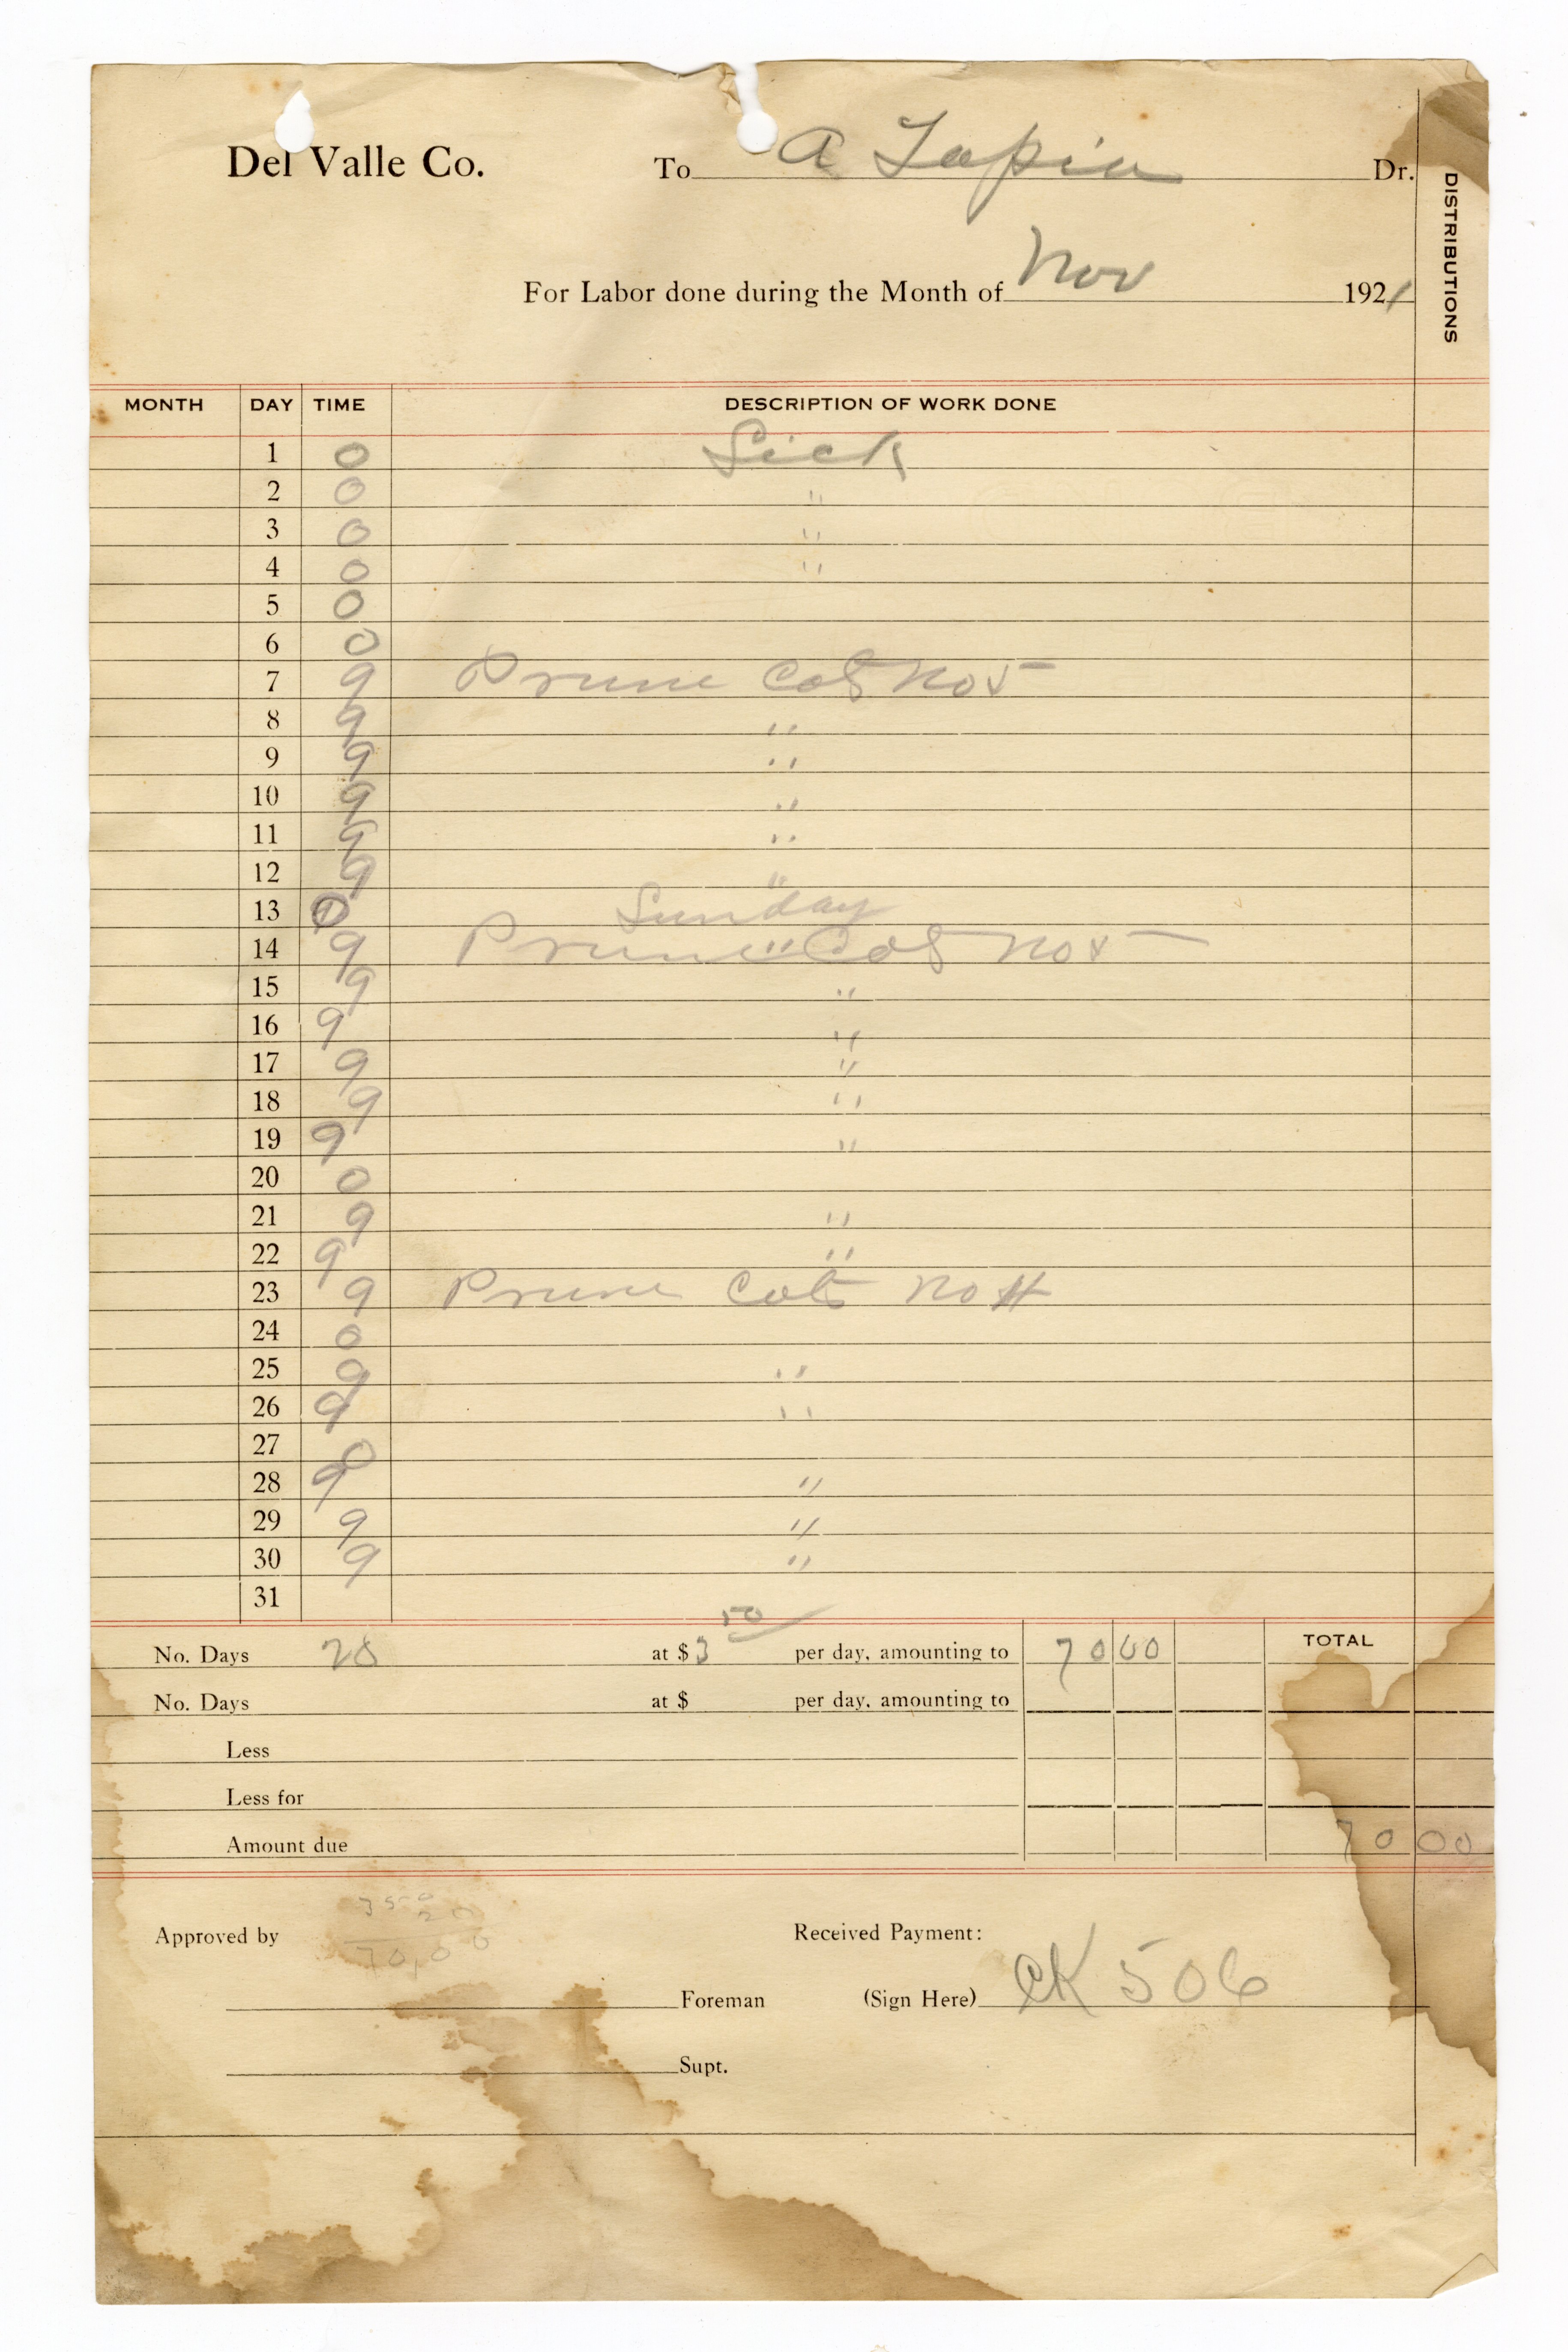 Del Valle Co. To A Tapia Dr.
DISTRIBUTIONS
For Labor done during the Month of Nov 1921
MONTH DAY TIME DESCRIPTION OF WORK DONE
1 0 Sick
2 0 "
3 0 "
4 0 "
5 0
6 0
7 9 Prune Cots No 5
8 9 "
9 9 "
10 9 "
11 9 "
12 9 "
13 0 Sunday
14 9 Prune " Cots No 5
15 9 "
16 9 "
17 9 "
18 9 "
19 9 "
20 0
21 9 "
22 9 "
23 9 Prune Cots No 4
24 0
25 9 "
26 9 "
27 0
28 9 "
29 9 "
30 9 "
31
No. Days 20 at $ 3 50 per day, amounting to 70 00 TOTAL
No. Days at $ per day, amounting to
Less
Less for
Amount due 70 00
3 50
20
70,00
Approved by Received Payment:
Foreman (Sign Here) CK 506
Supt.